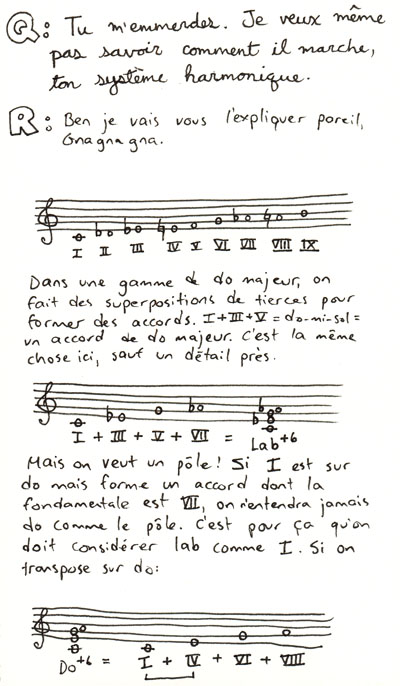 Q: Tu m'emmerdes. Je veux même
pas savoir comment il marche,
ton système harmonique.
R: Ben je vais vous l'expliquer pareil,
Gnagnagna.
I II III IV V VI VII VIII IX
Dans une gamme de do majeur, on
fait des superpositions de tierces pour
former des accords. I+III+V = do-mi-sol =
un accord de do majeur. C'est la même
chose ici, sauf un détail près.
I + III + V + VII = Lab+6
Mais on veut un pôle! Si I est sur
do mais forme un accord dont la
fondamentale est VII, on n'entendra jamais
do comme le pôle. C'est pour ça qu'on
doit considérer lab comme I. Si on
transpose sur do:
Do+6 = I + IV + VI + VIII